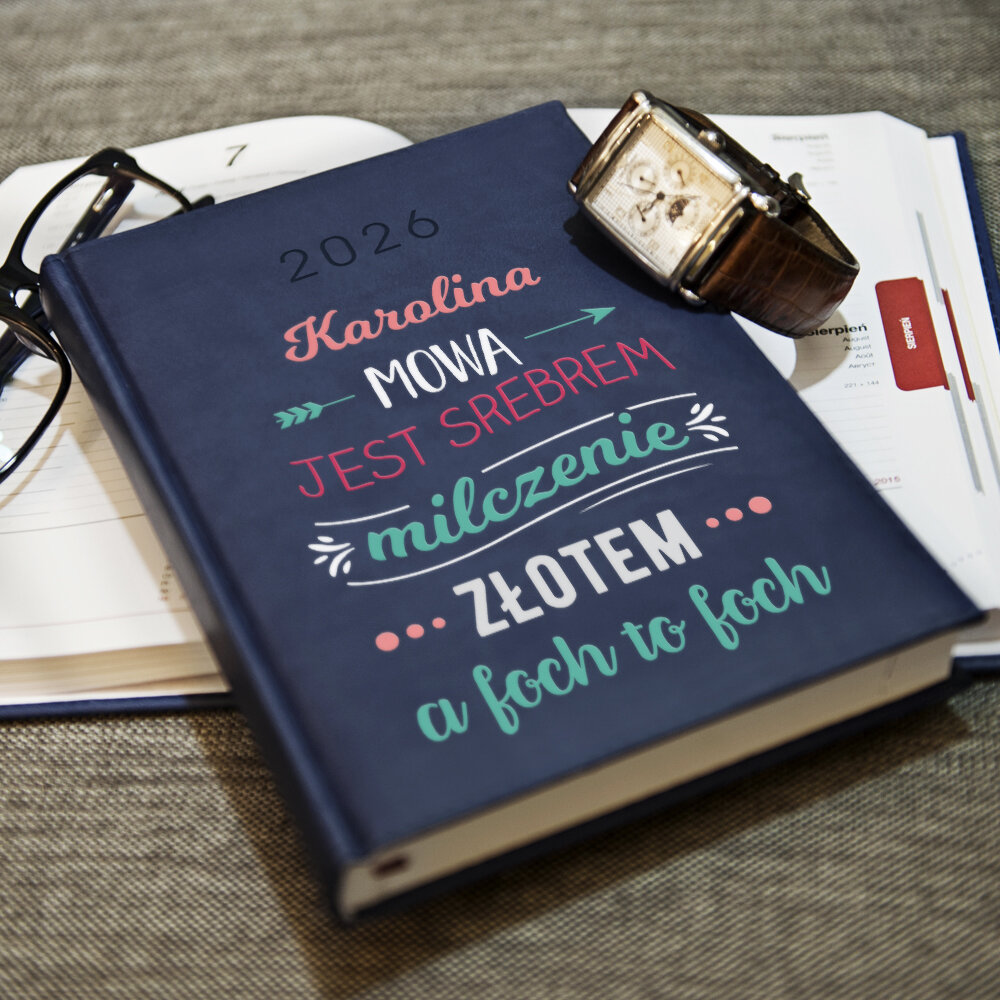 7
2026
Karolina
MOWA
JEST SREBREM
milczenie
ZŁOTEM
a foch to foch
Sierpień
Sierpień
August
August
Août
Август
221 + 144
SIERPIEŃ
2015